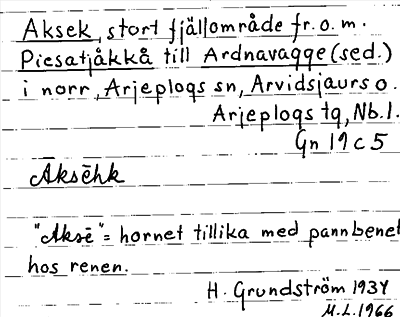 Aksek, stort fjällområde fr.o.m.
Piesatjåkkå till Ardnavagge (sed.)
i norr, Arjeplogs sn, Arvidsjaurs o.
Arjeplogs tg, Nb.l.
Gn 19 c 5
Aksēhk
"Aksē" = hornet tillika med pannbenet
hos renen.
H. Grundström 1934
M.L. 1966